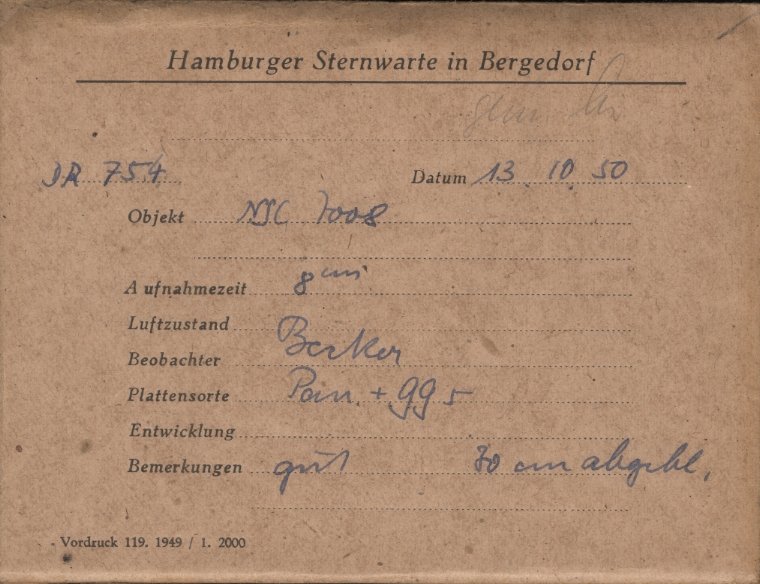 Hamburger Sternwarte in Bergedorf
DR 754 Datum 13. 10. 50
Objekt NGC 7008
Aufnahmezeit 8 min
Luftzustand
Beobachter Becker
Plattensorte Pan. + GG 5
Entwicklung
Bemerkungen gut 30 cm abgebl.
Vordruck 119. 1949 / 1. 2000